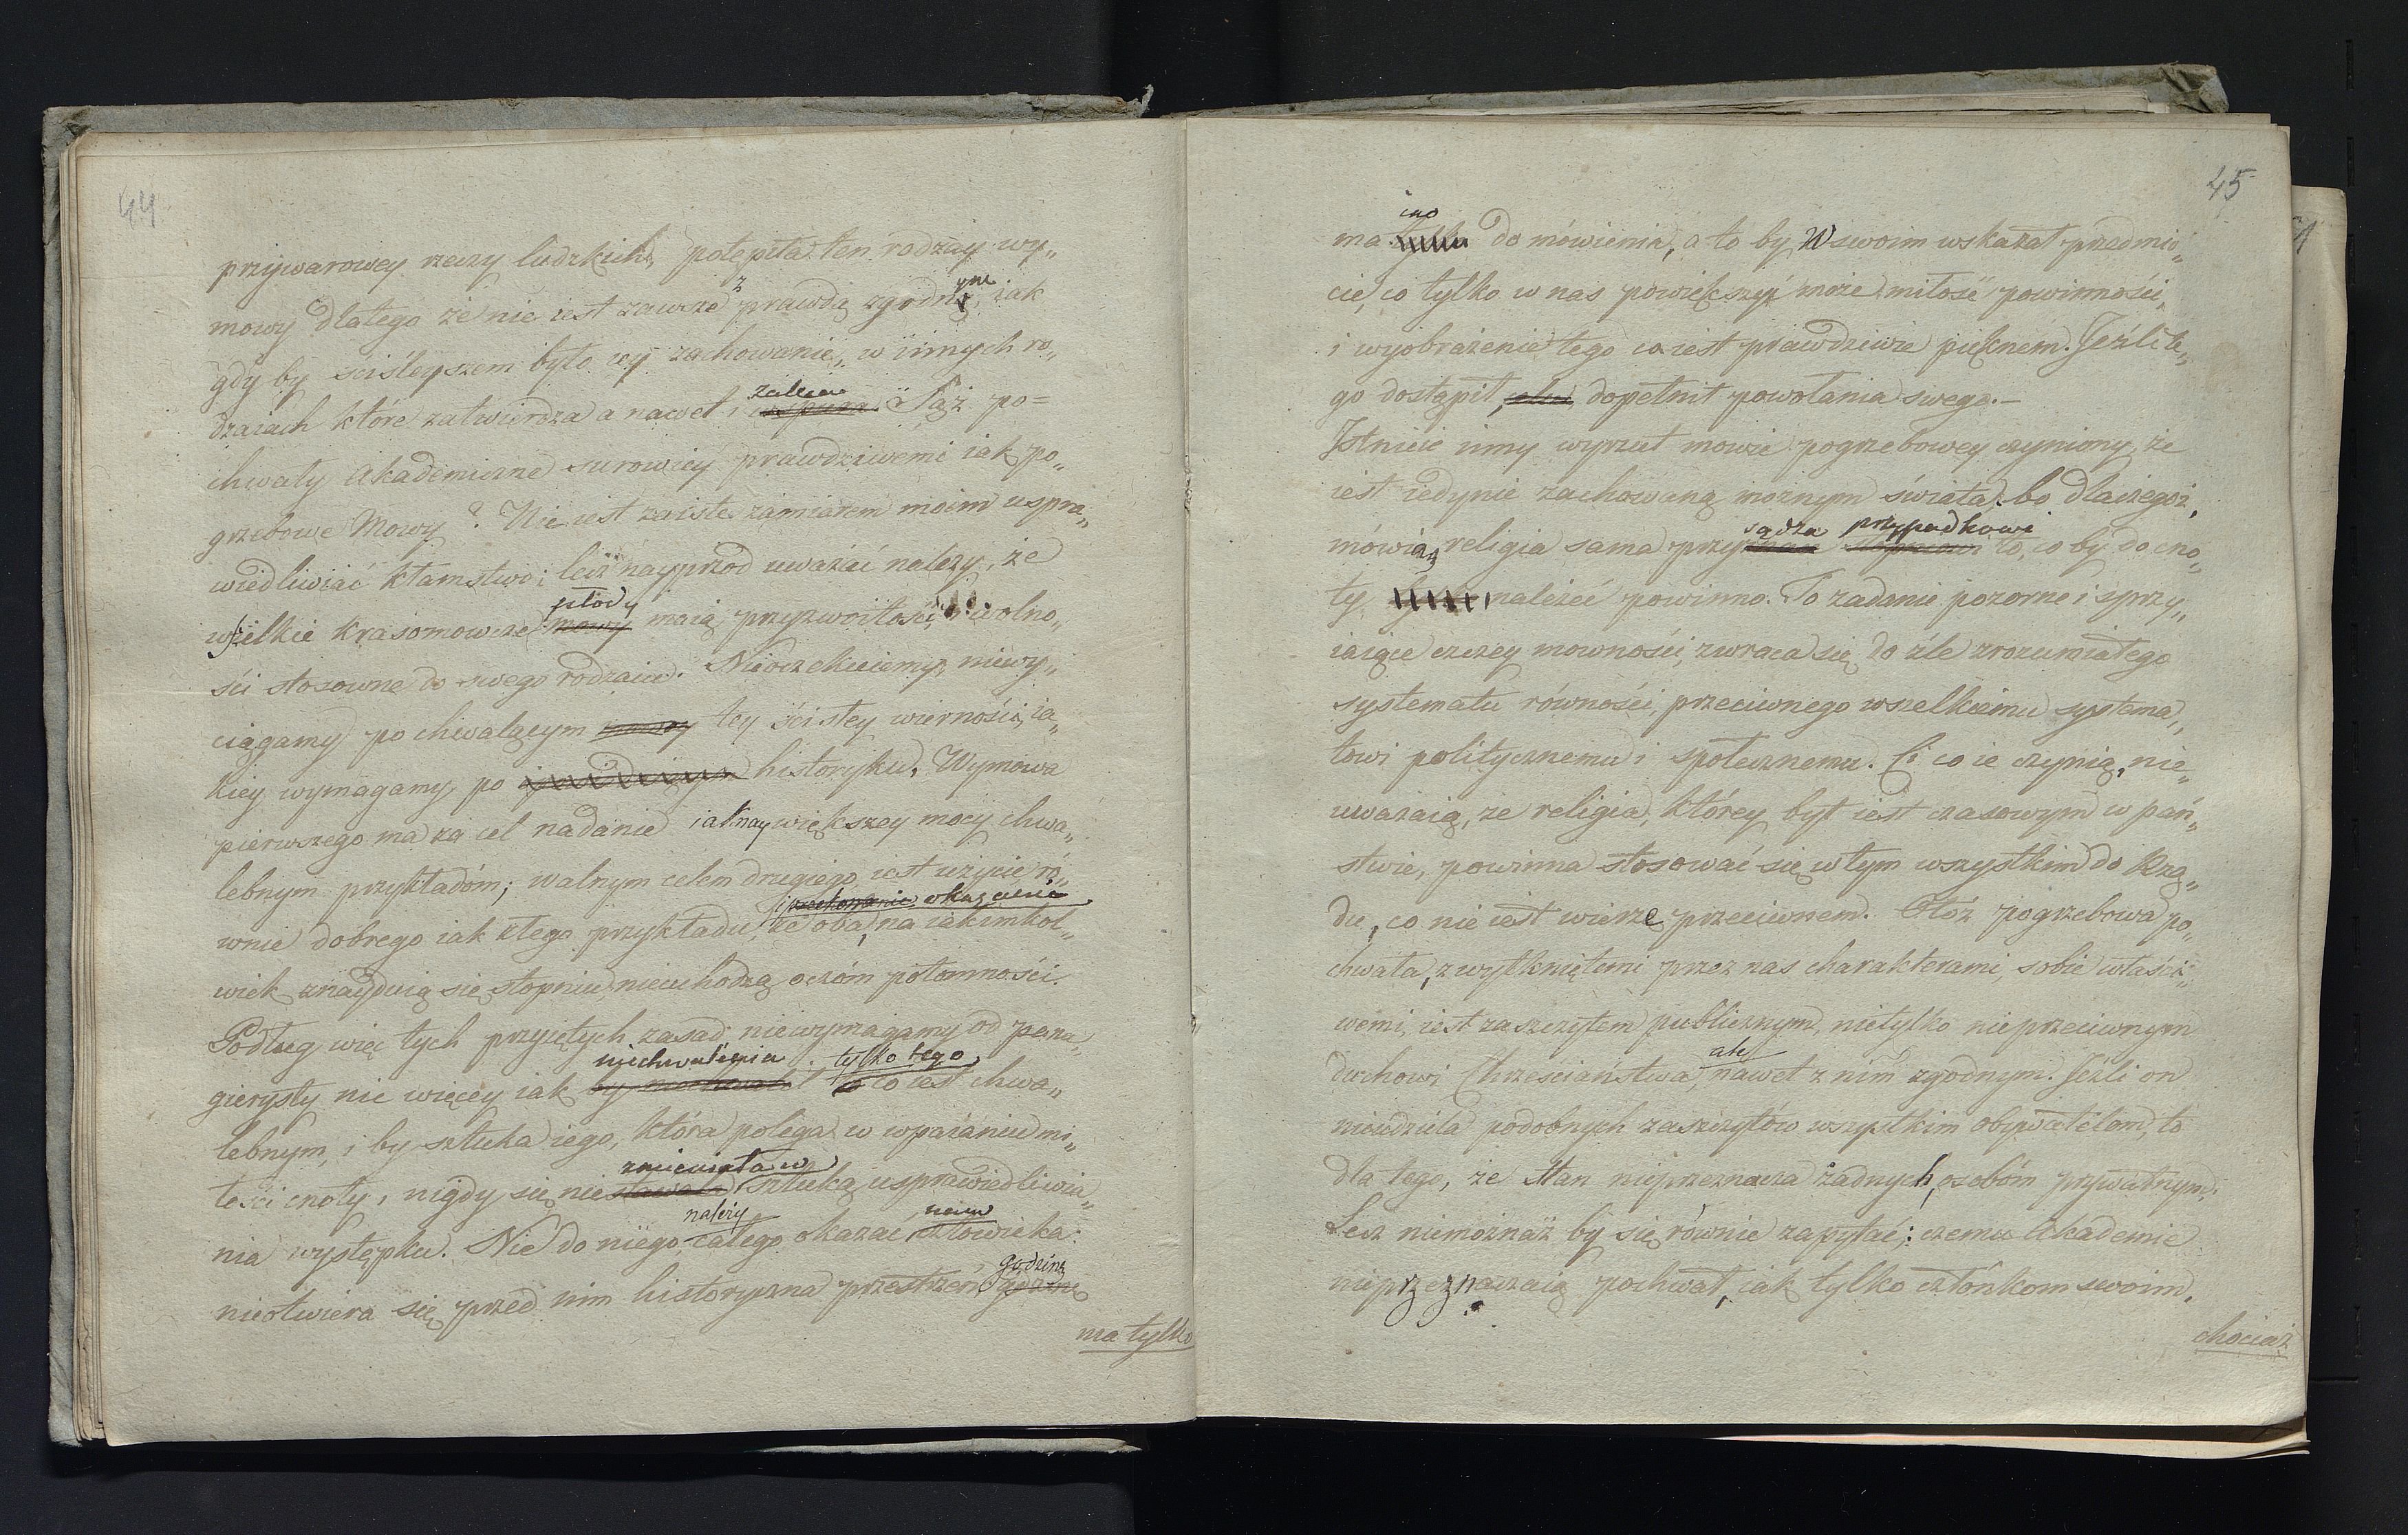 44
przywarowey rzeczy ludzkich, potępiła ten rodzay wy„
mowy dlatego że nie iest zawsze z prawdą zgodnym, iak
gdy by ściśleyszem było iey zachowanie, w innych ro„
dzaiach które zatwierdza a nawet i zaleca. Sąż po=
chwały Akademiczne surowiey prawdziwemi iak po„
grzebowe Mowy? Nie iest zaiste zamiarem moim uspra„
wiedliwiać kłamstwo; lecz nayprzód uważać należy, że
wszelkie krasomowcze płody maią przyzwoitości, i wolno„
ści stosowne do swego rodzaiu. Nieoczekuiemy, niewy„
ciągamy po chwalącym tey ścisłey wierności, ia„
kiey wymagamy, po historyku. Wymowa
pierwszego ma za cel nadanie iaknaywiększey mocy chwa„
lebnym przykładóm; walnym celem drugiego iest użycie ró„
okazanie
wnie dobrego iak złego przykładu, że oba, na iakimkol„
wiek znayduią się stopniu, nieuchodzą oczóm potomności.
Podług więc tych przyiętych zasad niewymagamy od pane„
niechwalenia tylko tego
girysty nic więcey iak co iest chwa„
lebnym, i by sztuka iego, która polega w wpaianiu mi„
zmieniała w
łości cnoty, nigdy się nie sztukę usprawiedliwia„
nia występku. Nie do niego należy całego okazać nam człowieka:
nieotwiera się przed nim historyczna przestrzeń godzinę
ma tylko
45
ino
ma do mówienia, a to by w swoim wskazał przedmio„
cie, co tylko w nas powiększyć może miłość powinności,
i wyobrażenie tego co iest prawdziwie pięknem. Jeźli te„
go dostąpił, dopełnił powołania swego.—
Istnieie inny wyrzut mowie pogrzebowey czyniony, że
iest iedynie zachowaną możnym świata: bo dlaczegoż,
mówią, religia sama przysądza przypadkowi to, co by do cno„
ty należeć powinno. To zadanie pozorne i sprzy„
iaiące czczey mowności, zwraca się do źle zrozumiałego
systematu równości, przeciwnego wszelkiemu systema„
towi politycznemu i społecznemu. Ci co ie czynią, nie„
uważaią, że religia, którey byt iest czasowym w pań„
stwie, powinna stosować się w tym wszystkim do Rzą„
du, co nie iest wierze przeciwnem. Otóż pogrzebowa po„
chwała, z wytkniętemi przez nas charakterami, sobie właści„
wemi, iest zaszczytem publicznym, nietylko nieprzeciwnym
duchowi Chrześciaństwa, ale nawet z nim zgodnym. Jeźli on
nieudziela podobnych zaszczytów wszystkim obywatelom, to
dla tego, że stan nieprzeznacza żadnych, osobóm prywatnym.
Lecz niemożnaż by się równie zapytać; czemu Akademie
nieprzeznaczaią pochwał, iak tylko członkom swoim,
chociaż